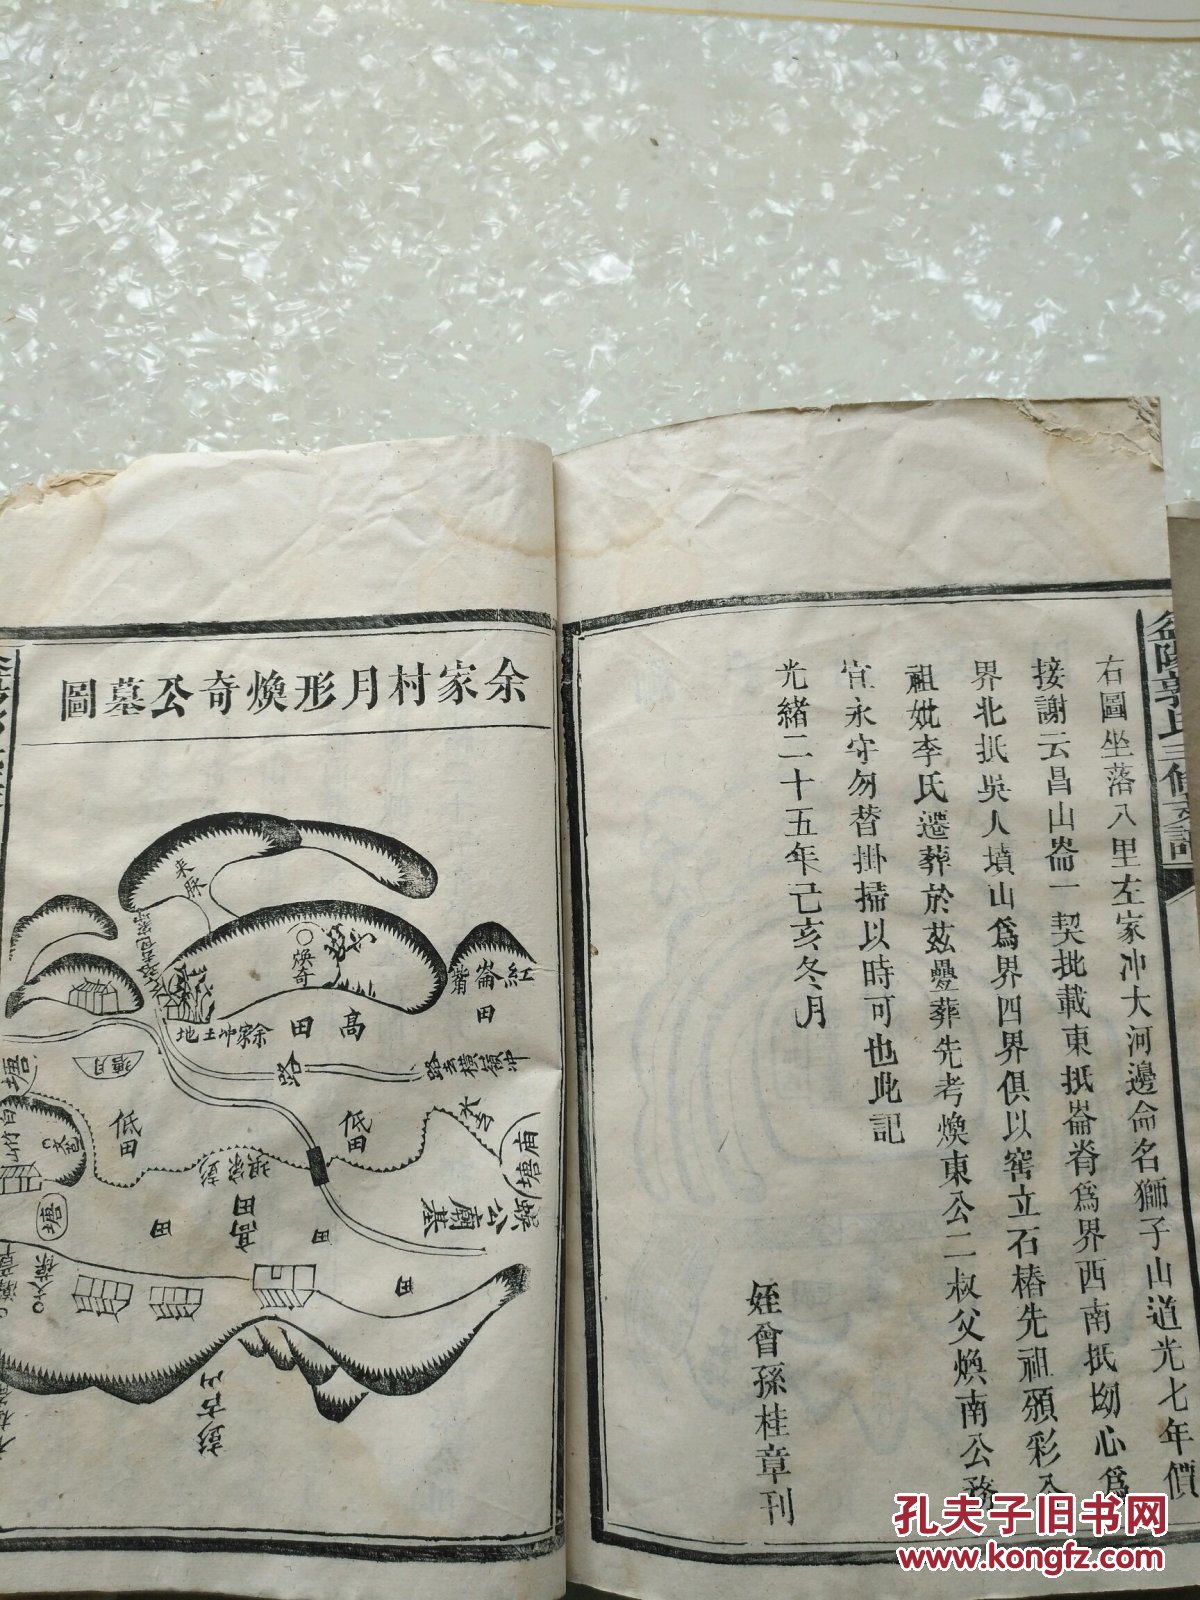 益陽郭氏三修支譜
右圖坐落八里左家冲大河邊命名獅子山道光七年價
接謝云昌山崙一契批載東抵崙脊爲界西南抵坳心爲
界北抵吳人墳山爲界四界俱以窖立石樁先祖頒彩公
祖妣李氏遷葬於茲疊葬先考煥東公二叔父煥南公務
宜永守勿替掛掃以時可也此記
光緒二十五年己亥冬月
姪曾孫桂章刊
余家村月形煥奇公墓圖
來脈
煥奇
紅
崙
田
高田
余家冲土地
路
塘月
塘
低田
低田
廟塘
張公廟基
高田
田
田
田
塘
白竹山
彭家山
孔夫子旧书网
www.kongfz.com